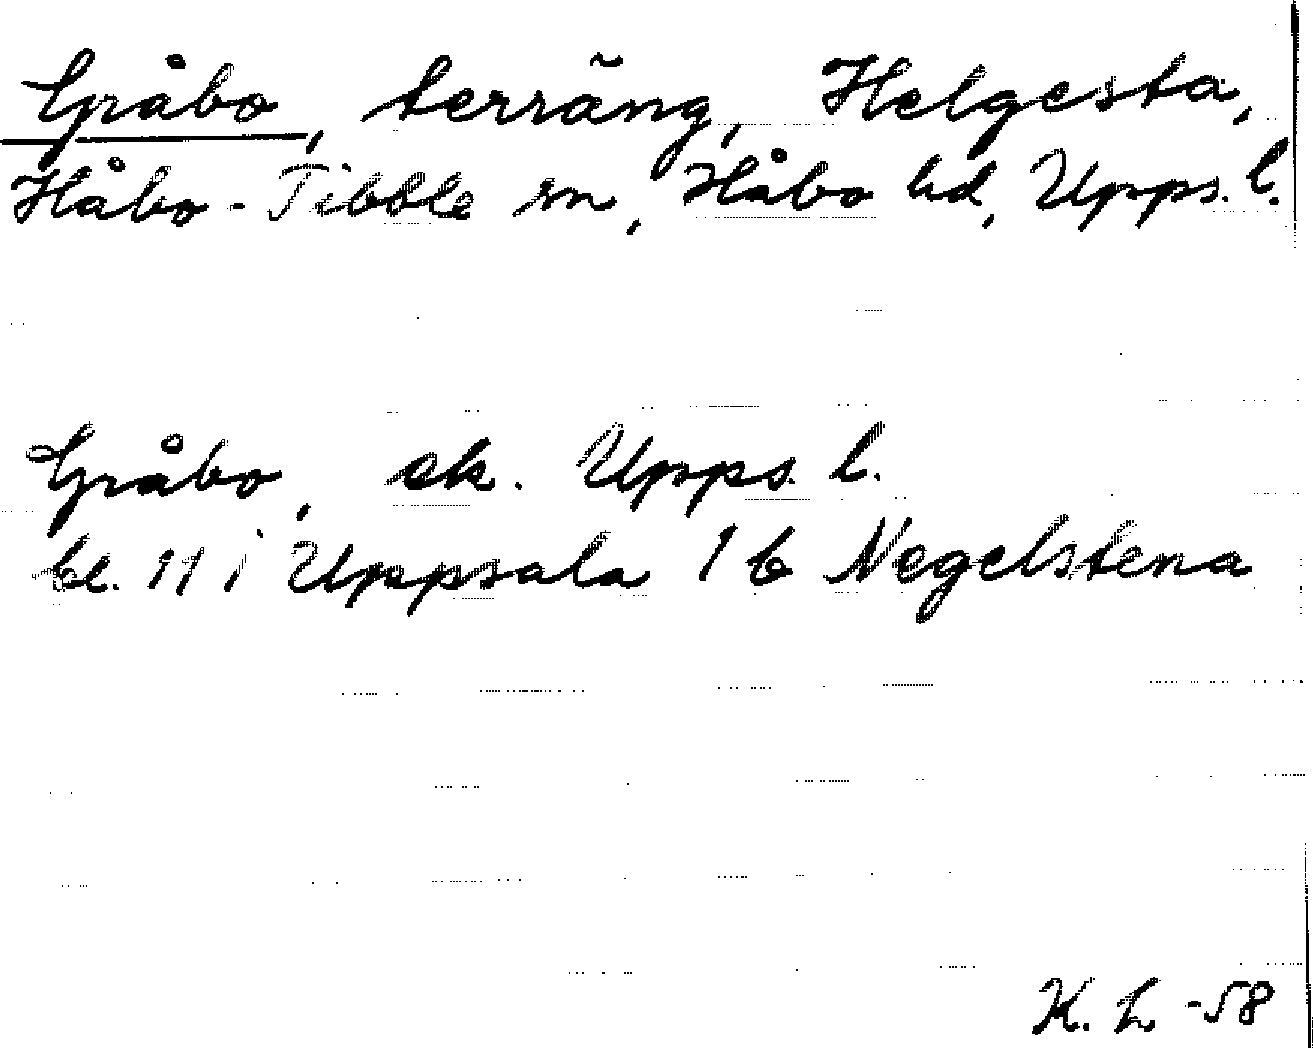 Gråbo, terräng, Helgesta,
Håbo-Tibble sn, Håbo hd, Upps. l.
Gråbo, ek. Upps. l.
bl. 11 i Uppsala 1 b Negelstena
K. L -58